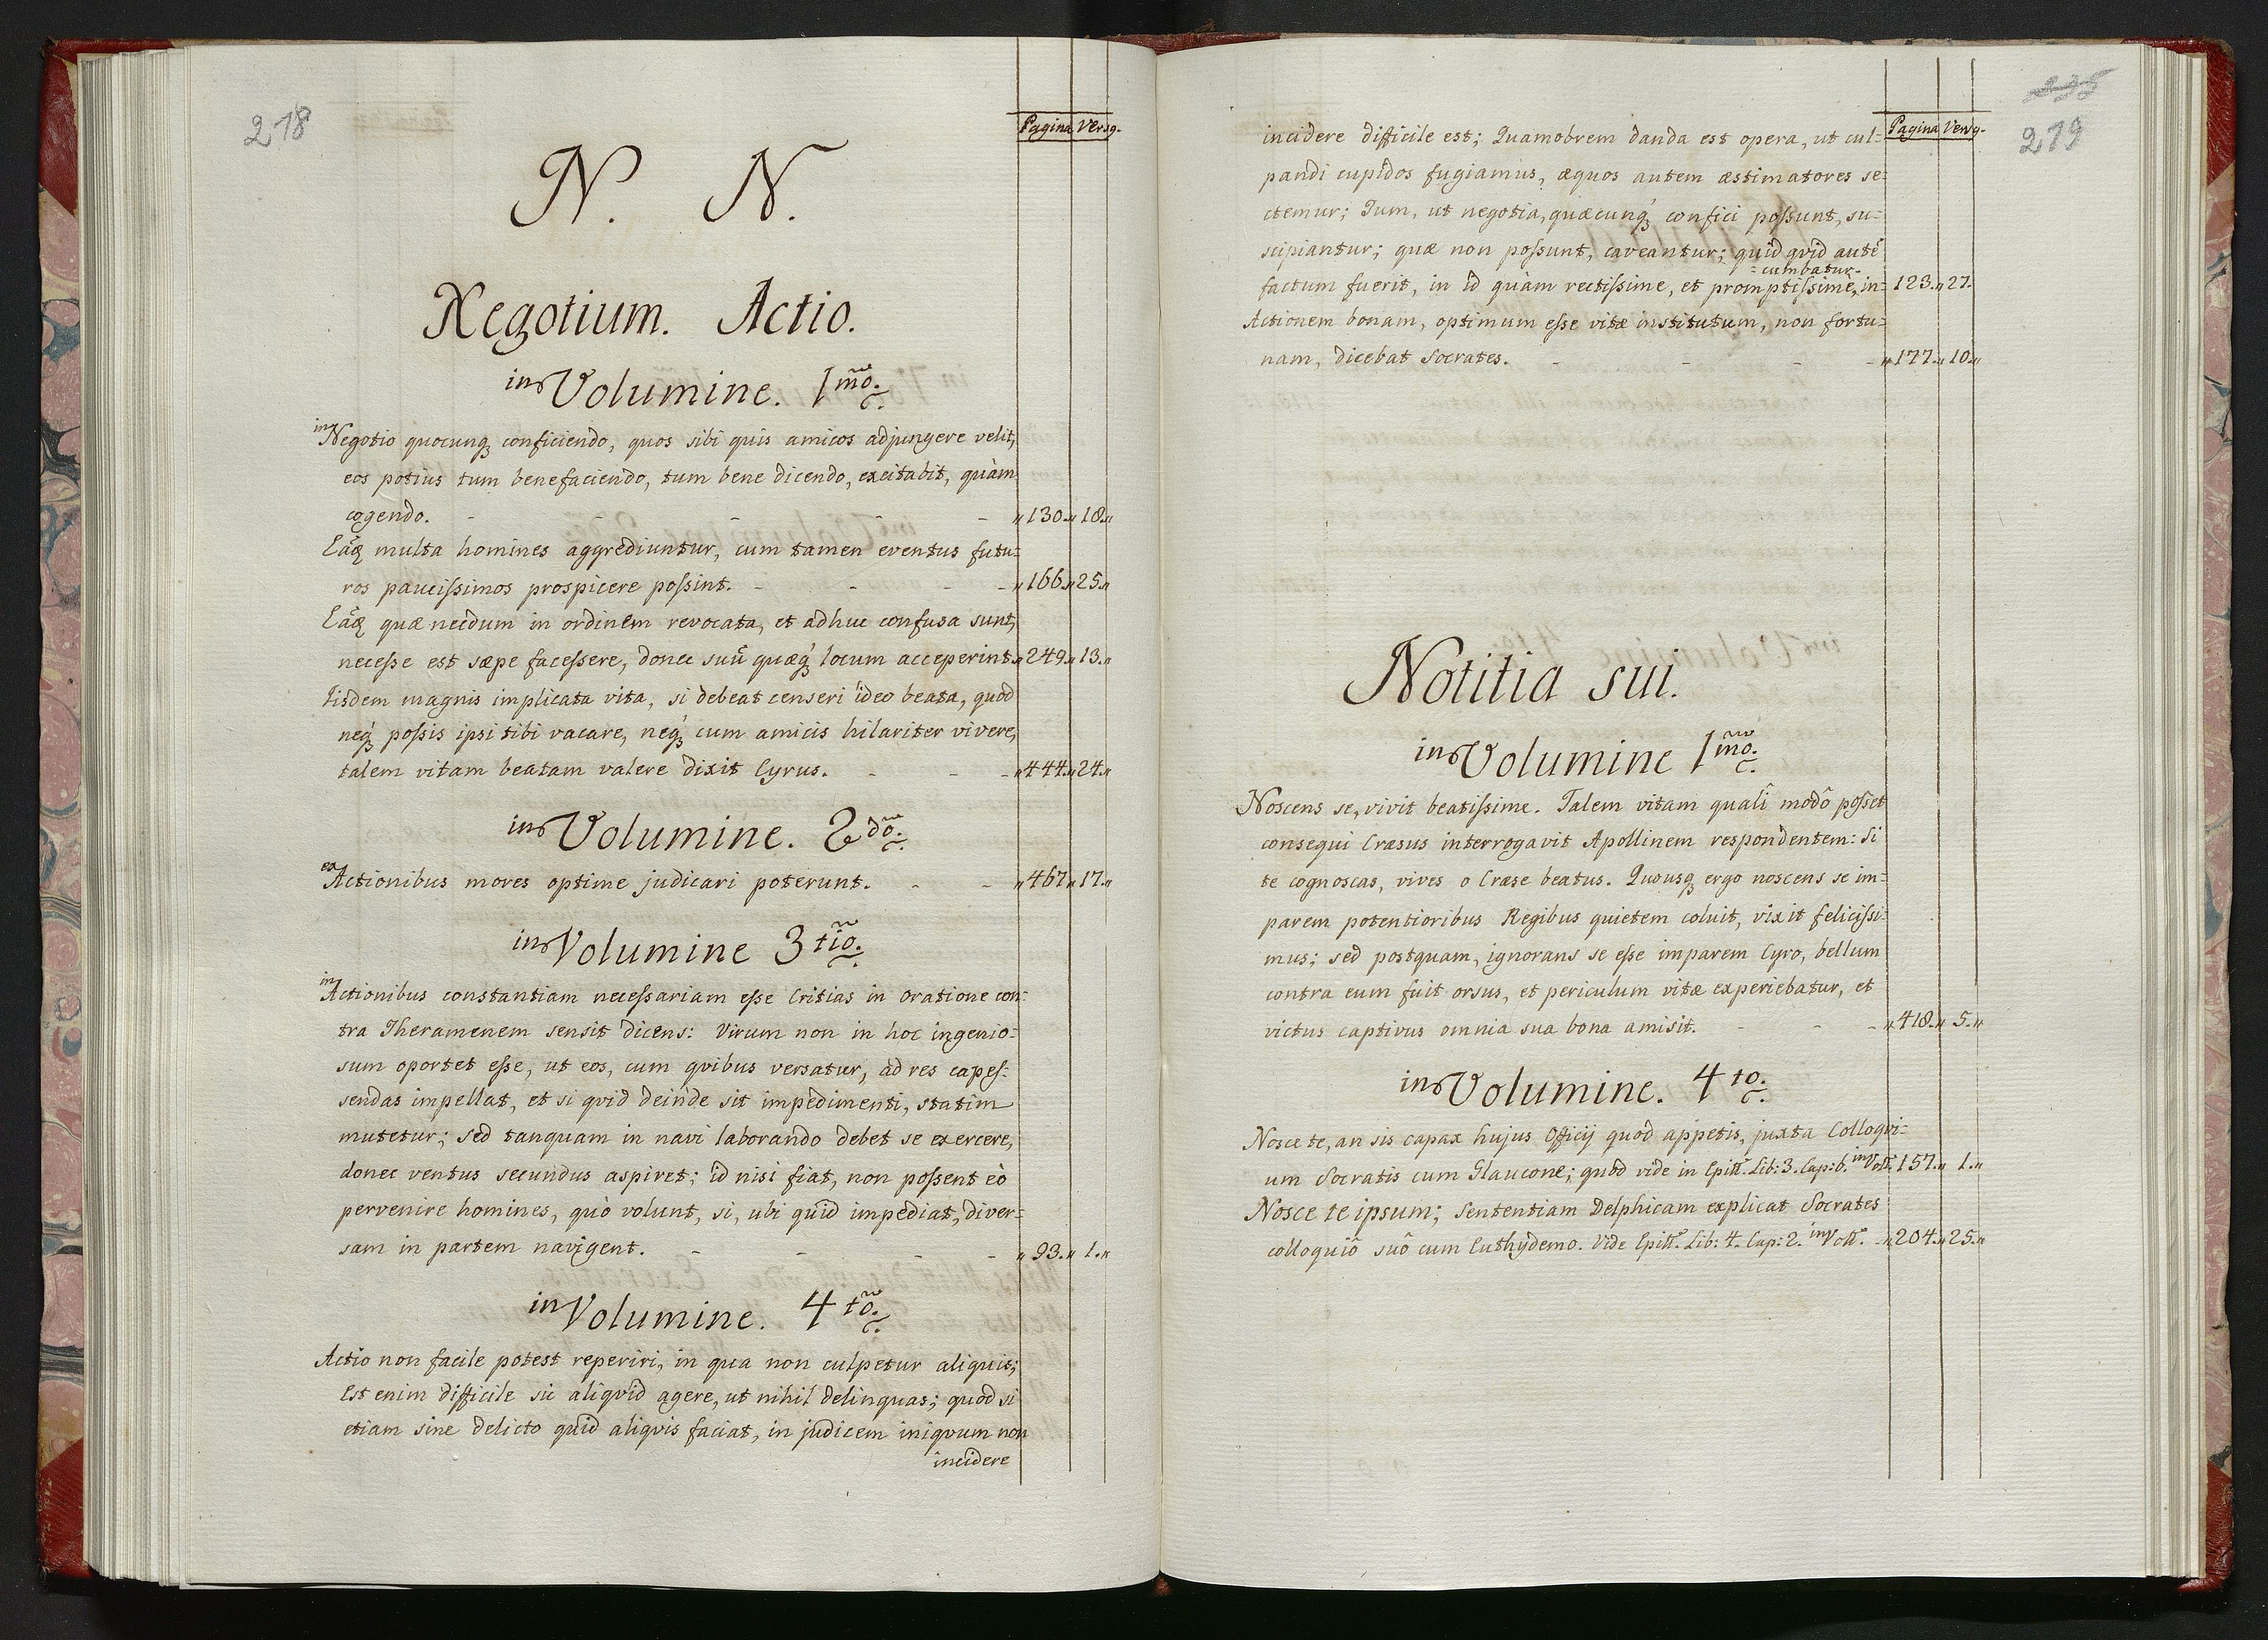 218
Pagina Versq.
N. N.
Negotium. Actio.
in Volumine. 1mo.
in Negotio quocunq; conficiendo, quos sibi quis amicos adjungere velit,
eos potius tum benefaciendo, tum bene dicendo, excitabit, quàm
cogendo. - - - - - „130.„18.„
Eáq multa homines aggrediuntur, cum tamen eventus futu=
ros paucissimos prospicere possint. - - - - „166.„25.„
Eáq quæ necdum in ordinem revocata, et adhuc confusa sunt,
necesse est sæpe facessere, donec suū quæq; locum acceperint.„249.„13.„
Iisdem magnis implicata vita, si debeat censeri ideo beata, quod
neq; possis ipsi tibi vacare, neq; cum amicis hilariter vivere,
talem vitam beatam valere dixit Cyrus. - - - „444.„24.„
in Volumine. 2do.
ex Actionibus mores optime judicari poterunt. - - „467.„17.„
in Volumine 3tio.
in Actionibus constantiam necessariam esse Critias in oratione con=
tra Theramenem sensit dicens: Virum non in hoc ingenio=
sum oportet esse, ut eos, cum qvibus versatur, ad res capes=
sendas impellat, et si qvid deinde sit impedimenti, statim
mutetur; sed tanquam in navi laborando debet se exercere,
donec ventus secundus aspiret; id nisi fiat, non possent eò
pervenire homines, quò volunt, si, ubi quid impediat, diver=
sam in partem navigent. - - - - „93.„1.„
in Volumine. 4to.
Actio non facile potest reperiri, in qua non culpetur aliquis;
Est enim difficile sic aliqvid agere, ut nihil delinquas; quod si
etiam sine delicto quid aliqvis faciat, in judicem iniqvum non
incidere
235
219
Pagina Versq.
incidere difficile est; Quamobrem danda est opera, ut cul=
pandi cupidos fugiamus, æquos autem æstimatores se=
ctemur; Tum, ut negotia, quæcunq; confici possunt, su=
scipiantur; quæ non possunt, caveantur; quid qvid autē
=cumbatur.
factum fuerit, in id quàm rectissime, et promptissimè, in= 123.„27.
Actionem bonam, optimum esse vitæ institutum, non fortu=
nam, dicebat Socrates. - - - - „177.„10.„
Notitia sui.
in Volumine 1mo.
Noscens se, vivit beatissime. Talem vitam qualî modô posset
consequi Cræsus interrogavit Apollinem respondentem: Si
te cognoscas, vives o Cræse beatus. Quousq; ergo noscens se im=
parem potentioribus Regibus quietem coluit, vixit felicissi=
mus; sed postquam, ignorans se esse imparem Cyro, bellum
contra eum fuit orsus, et periculum vitæ experiebatur, et
victus captivus omnia sua bona amisit. - - - „418.„5.„
in Volumine. 4to.
Nosce te, an sis capax hujus Officij quod appetis, juxta Colloqvi=
um Socratis cum Glaucone; quod vide in Epitt. Lib: 3. Cap: 6. in Voll. 157.„1.„
Nosce te ipsum; Sententiam Delphicam explicat Socrates
colloquiô suô cum Euthydemo. Vide Epitt. Lib: 4. Cap: 2. in Voll. - „204.„25.„